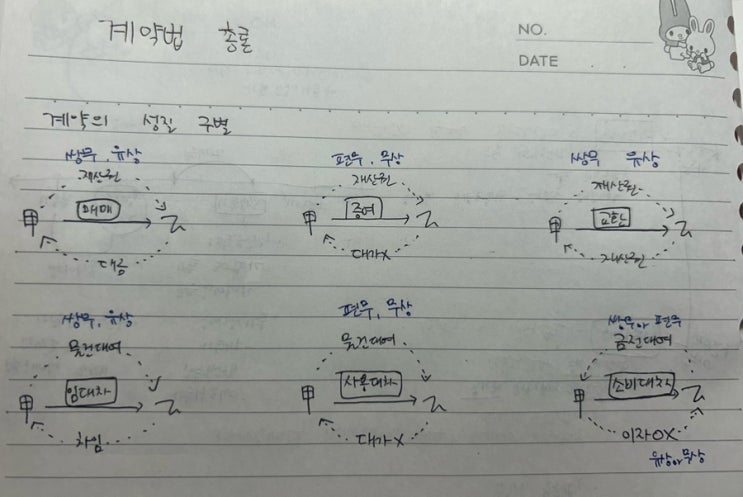 계약법 총론
NO.
DATE . .
계약의 성질 구별
쌍무, 유상
재산권
甲 매매 乙
대금
편무, 무상
재산권
甲 증여 乙
대가X
쌍무 유상
재산권
甲 교환 乙
재산권
쌍무, 유상
물건대여
甲 임대차 乙
차임
편무, 무상
물건대여
甲 사용대차 乙
대가X
쌍무 or 편무
금전대여
甲 소비대차 乙
이자OX
유상or무상